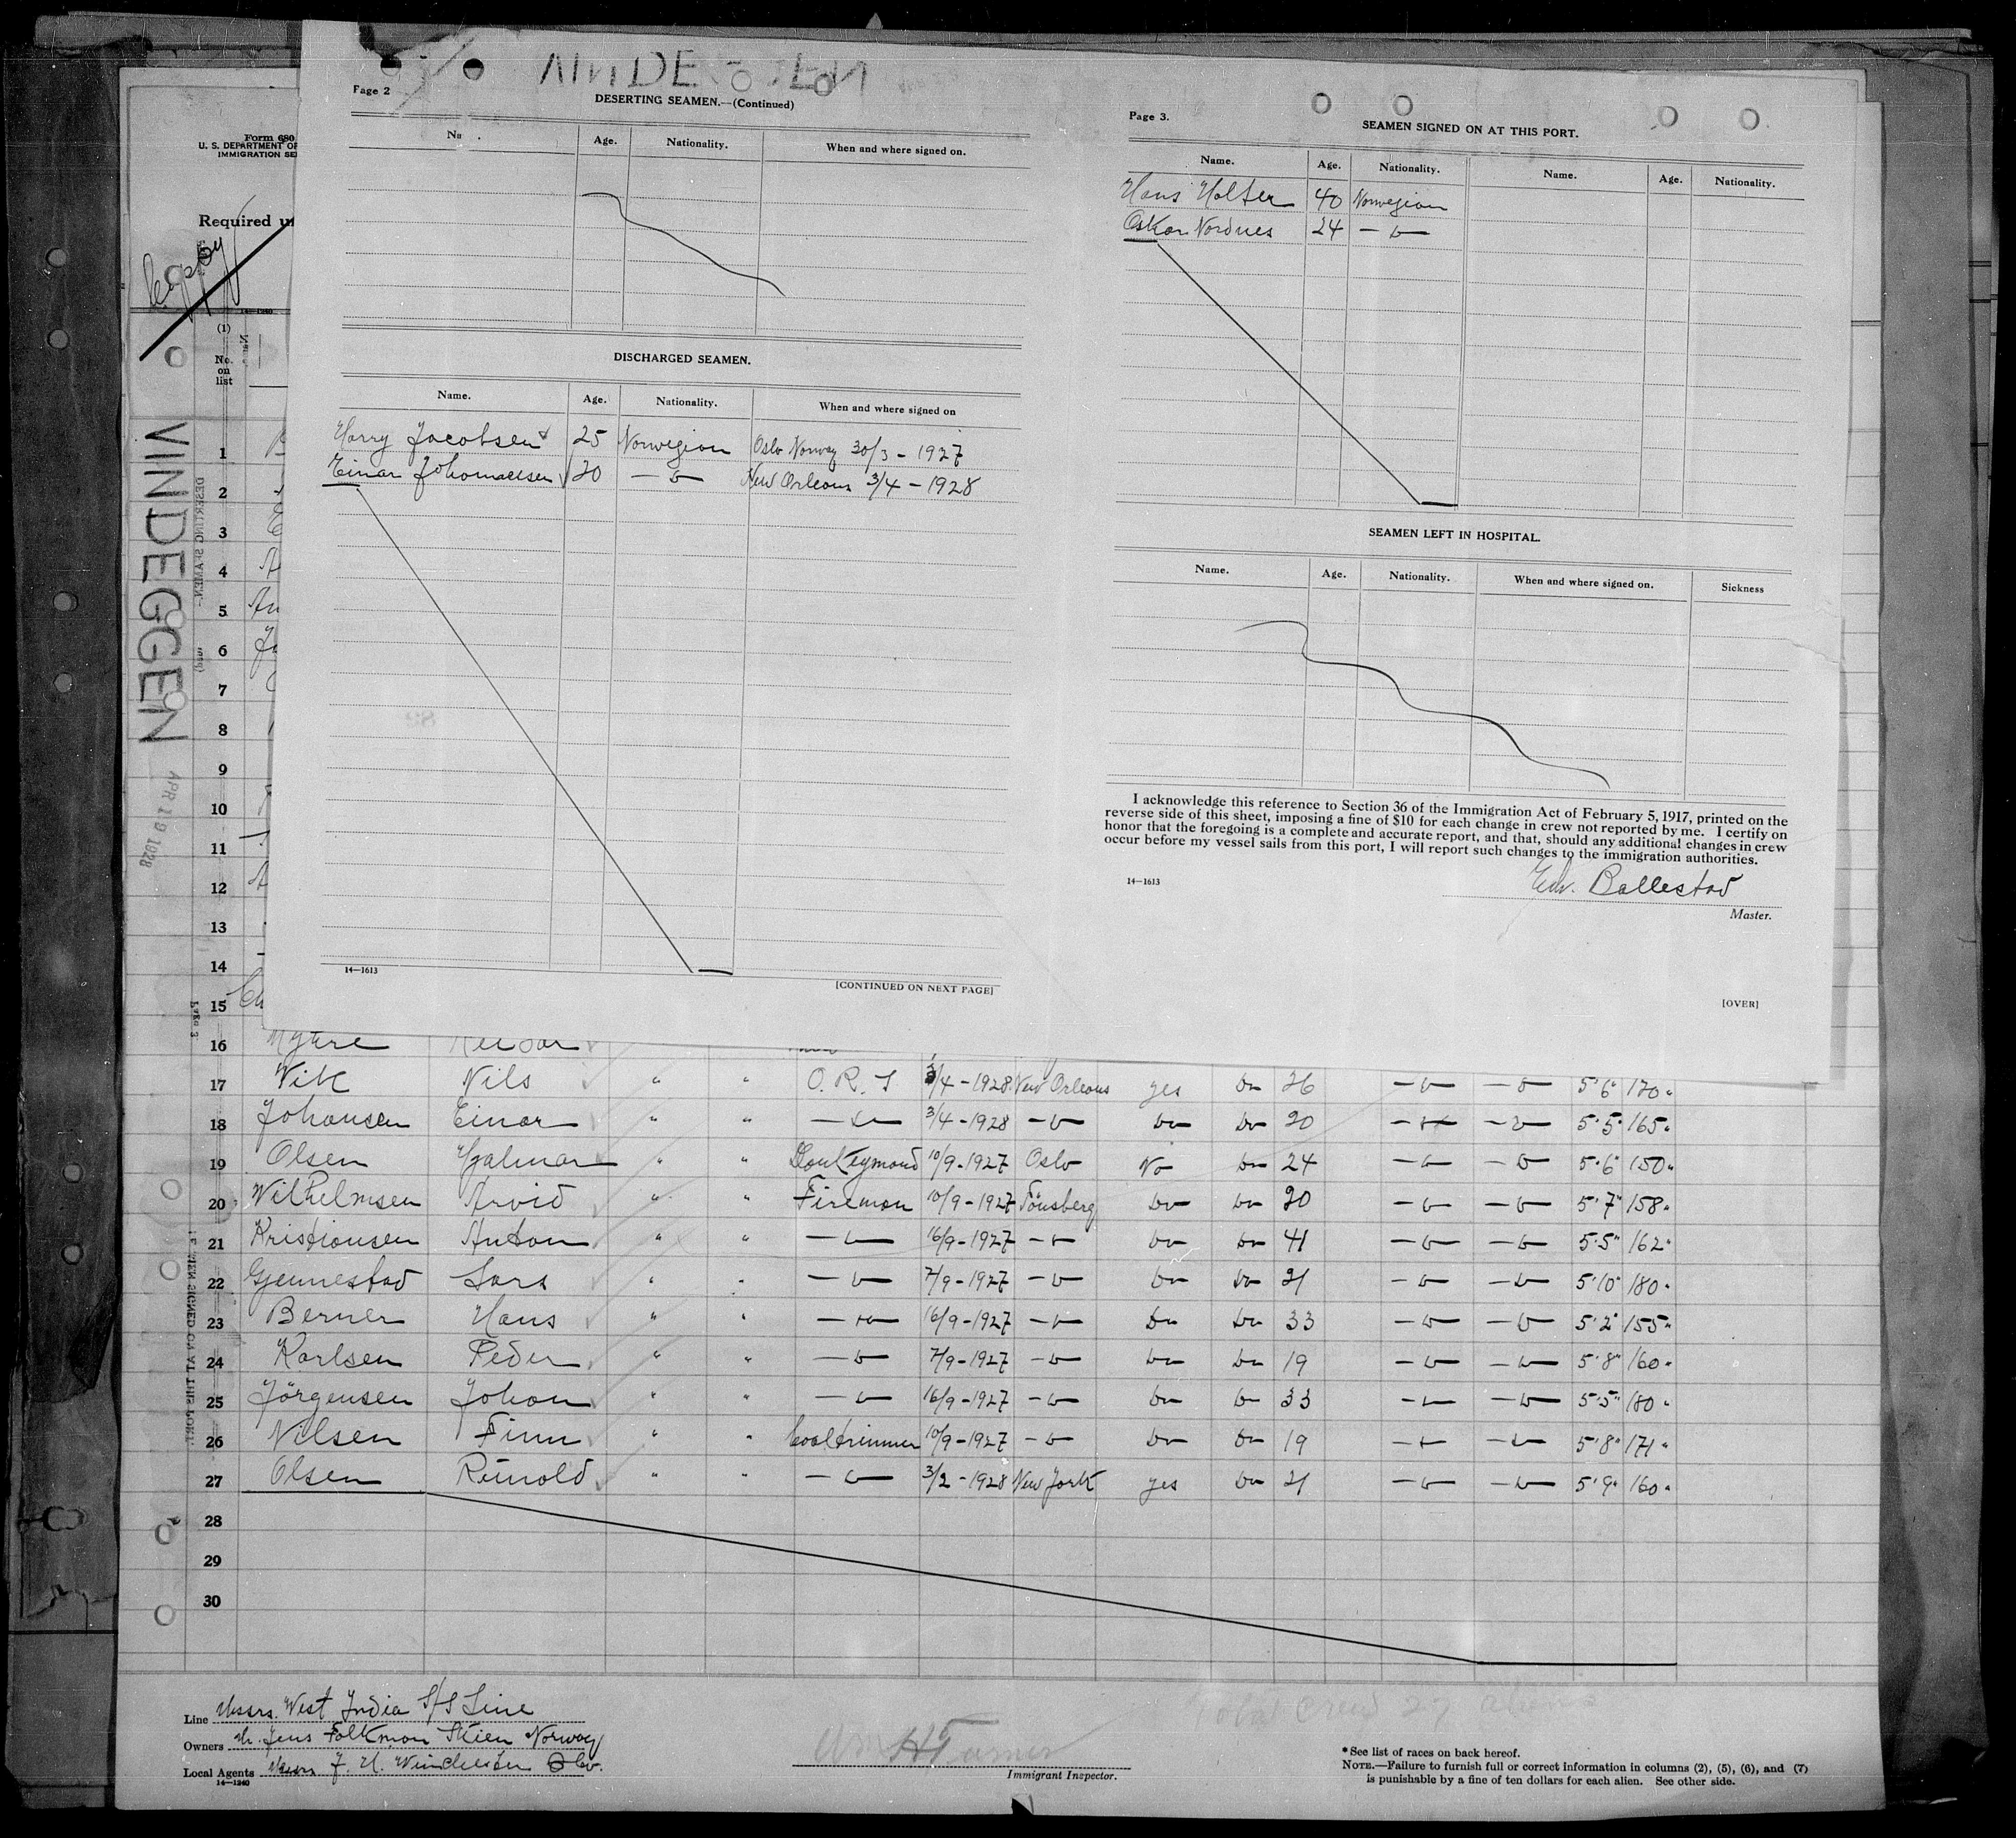 Page 2
DESERTING SEAMEN.—(Continued)
Age. Nationality. When and where signed on.
DISCHARGED SEAMEN.
Name. Age. Nationality. When and where signed on
Harry Jacobsen 25 Norwegian Oslo Norway 30/3 - 1927
Einar Johansen 20 — " — New Orleans 3/4 - 1928
14—1613
[CONTINUED ON NEXT PAGE]
Page 3.
SEAMEN SIGNED ON AT THIS PORT.
Name. Age. Nationality. Name. Age. Nationality.
Hans Holter 40 Norwegian
Oskar Nordnes 24 — " —
SEAMEN LEFT IN HOSPITAL.
Name. Age. Nationality. When and where signed on. Sickness
I acknowledge this reference to Section 36 of the Immigration Act of February 5, 1917, printed on the
reverse side of this sheet, imposing a fine of $10 for each change in crew not reported by me. I certify on
honor that the foregoing is a complete and accurate report, and that, should any additional changes in crew
occur before my vessel sails from this port, I will report such changes to the immigration authorities.
14—1613
Edv. Ballestad
Master.
[OVER]
Form 680
U. S. DEPARTMENT OF
IMMIGRATION SE
Required u
Copy
14—1240
(1)
No.
on
list
VINDEGGEN
APR 19 1928
1
2
3
4
5
6
7
8
9
10
11
12
13
14
15
16 Myhre Reidar
17 Vik Nils " " O. R. S 3/4 - 1928 New Orleans yes do 26 — " — — " — 5'6" 170"
18 Johansen Einar " " — " — 3/4 - 1928 — " — do do 20 — " — — " — 5'5" 165"
19 Olsen Hjalmar " " Donkeymand 10/9 - 1927 Oslo No do 24 — " — — " — 5'6" 150"
20 Wilhelmsen Arvid " " Fireman 10/9 - 1927 Tönsberg do do 20 — " — — " — 5'7" 158"
21 Kristiansen Anton " " — " — 16/9 - 1927 — " — do do 41 — " — — " — 5'5" 162"
22 Gjennestad Lars " " — " — 7/9 - 1927 — " — do do 21 — " — — " — 5'10" 180"
23 Berner Hans " " — " — 16/9 - 1927 — " — do do 33 — " — — " — 5'2" 155"
24 Karlsen Peder " " — " — 7/9 - 1927 — " — do do 19 — " — — " — 5'8" 160"
25 Jörgensen Johan " " — " — 16/9 - 1927 — " — do do 33 — " — — " — 5'5" 180"
26 Nilsen Finn " " Coaltrimmer 10/9 - 1927 — " — do do 19 — " — — " — 5'8" 171"
27 Olsen Reinold " " — " — 3/2 - 1928 New York yes do 21 — " — — " — 5'9" 160"
28
29
30
Total Crew 27 Aliens
Line Messrs. West India S/S Line
Owners Mr. Jens Folkman Skien Norway
Local Agents Messrs J. H. Winchester & Co.
14—1240
Immigrant Inspector.
* See list of races on back hereof.
NOTE.—Failure to furnish full or correct information in columns (2), (5), (6), and (7)
is punishable by a fine of ten dollars for each alien. See other side.